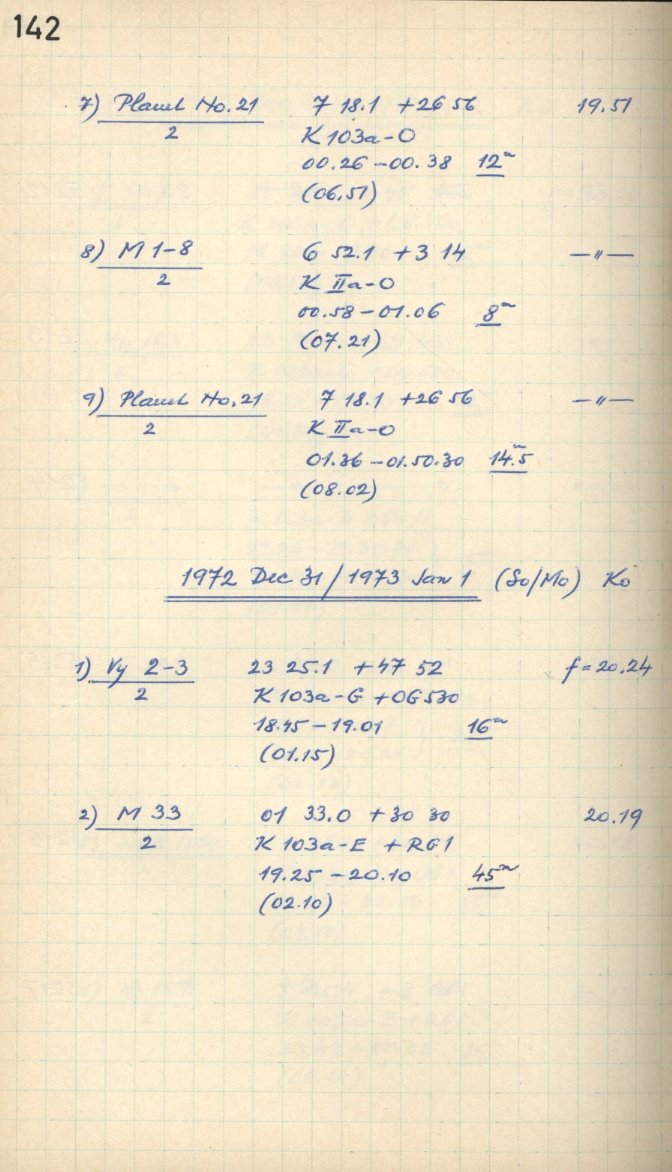 142
7) Planet No. 21 7 18.1 +26 56 19.51
2 K 103a-O
00.26-00.38 12m
(06.51)
8) M 1-8 6 52.1 +3 14 —"—
2 K IIa-O
00.58-01.06 8m
(07.21)
9) Planet No. 21 7 18.1 +26 56 —"—
2 K IIa-O
01.36-01.50.30 14m.5
(08.02)
1972 Dec 31/1973 Jan 1 (So/Mo) Ko
1) Vy 2-3 23 25.1 +47 52 f=20.24
2 K 103a-G +OG530
18.45-19.01 16m
(01.15)
2) M 33 01 33.0 +30 30 20.19
2 K 103a-E +RG1
19.25-20.10 45m
(02.10)